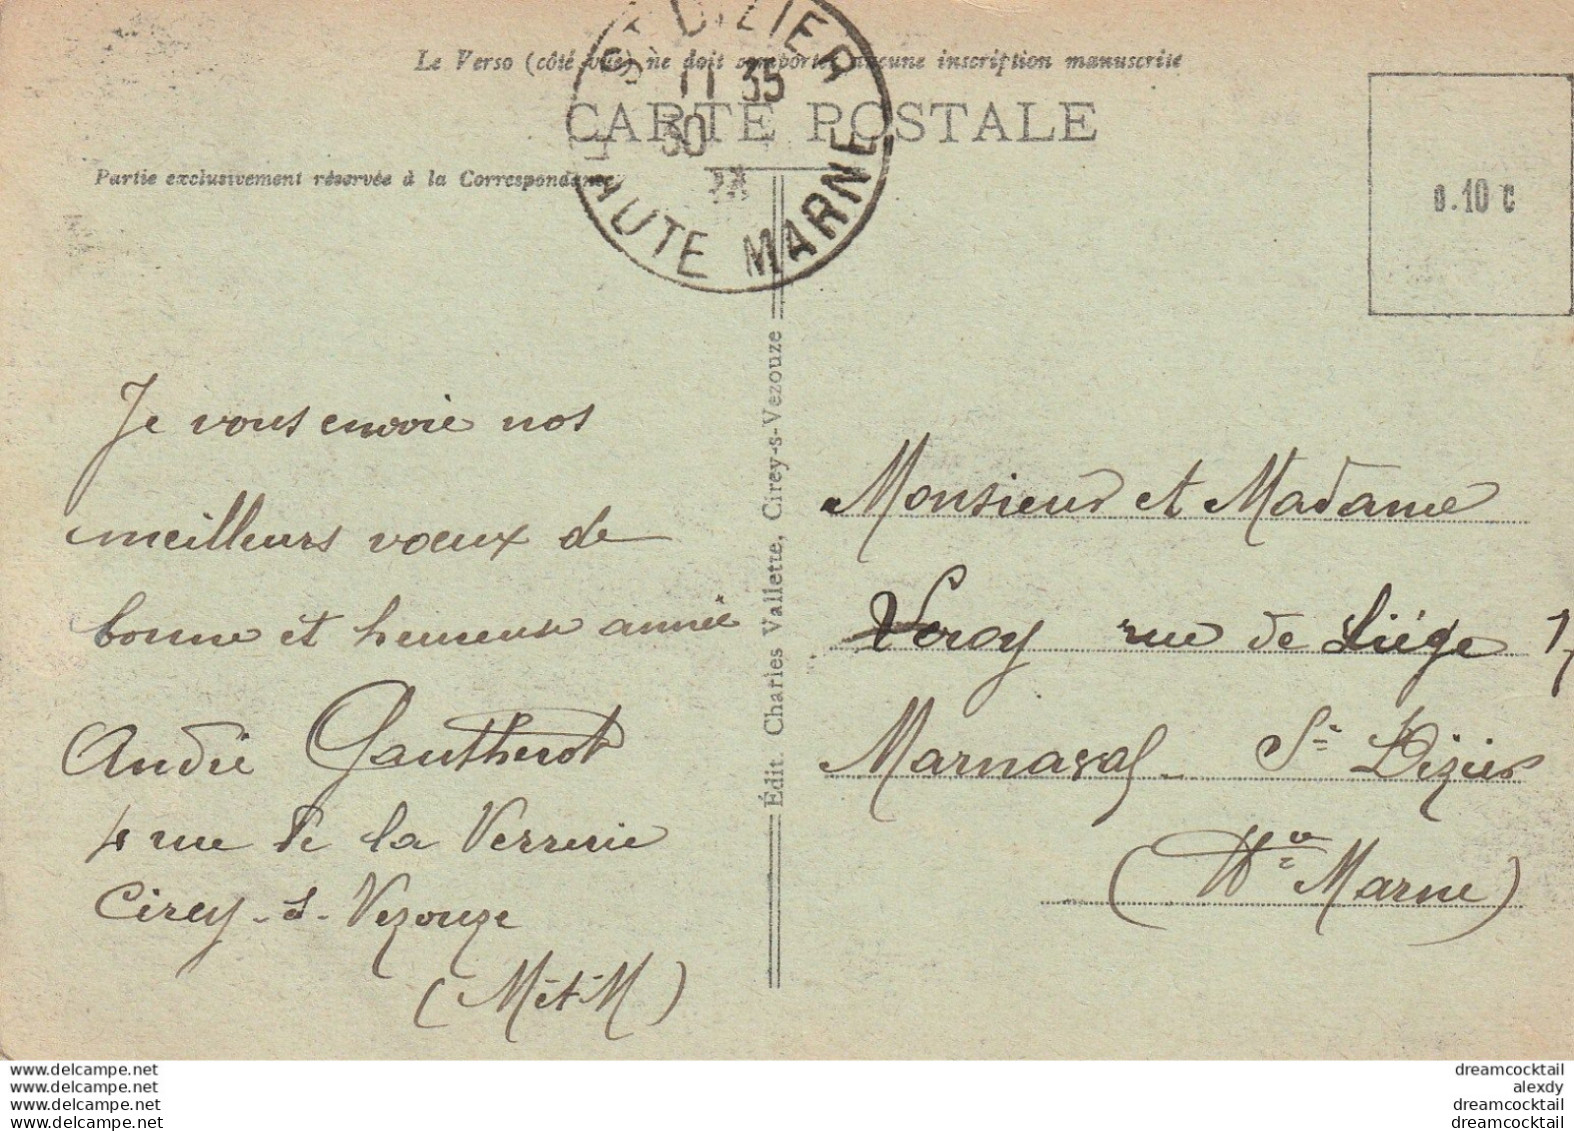 Le Verso (côté vue) ne doit comporter aucune inscription manuscrite
CARTE POSTALE
Partie exclusivement réservée à la Correspondance
ST DIZIER
11 35
30
HAUTE MARNE
0.10 C
Je vous envoie nos
meilleurs vœux de
bonne et heureuse année
André Gautherot
4 rue de la Verrerie
Cirey-s-Vezouze
(M et M)
Édit. Charles Vallette, Cirey-s-Vezouze
Monsieur et Madame
Veroy rue de Liége 17
Marnaval - St Dizier
(Hte Marne)
www.delcampe.net
www.delcampe.net
www.delcampe.net
www.delcampe.net
dreamcocktail
alexdy
dreamcocktail
dreamcocktail